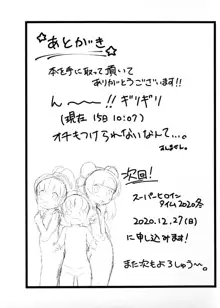 ☆あとがき☆
本を手に取って頂いて
ありがとうございます!!
ん〜〜!!ギリギリ
(現在 15日10:07)
オチもつけられないなんて…。
すしません。
次回!
スーパーヒロイン
タイム2020冬
2020.12.27(日)
に申し込みます!
また次もよろしゅう〜。